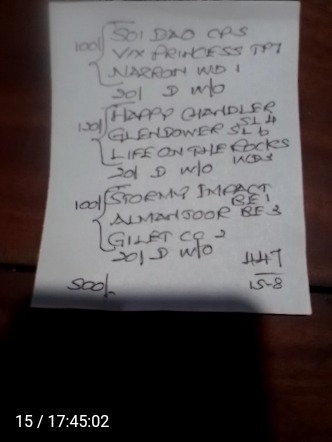 100/ SOI DAO CP5
VIX PRINCESS TP1
NARRON WD 1
20/ D W/O
120/ HAPPY CHANDLER
SL 4
GLENDOWER SL 6
LIFE ON THE ROCKS
WD3
20/ D W/O
100/ STORMY IMPACT
BE 1
ALMANSOOR BE 3
GILET CG 2
20/ D W/O
447
500/. 15-8
15 / 17:45:02